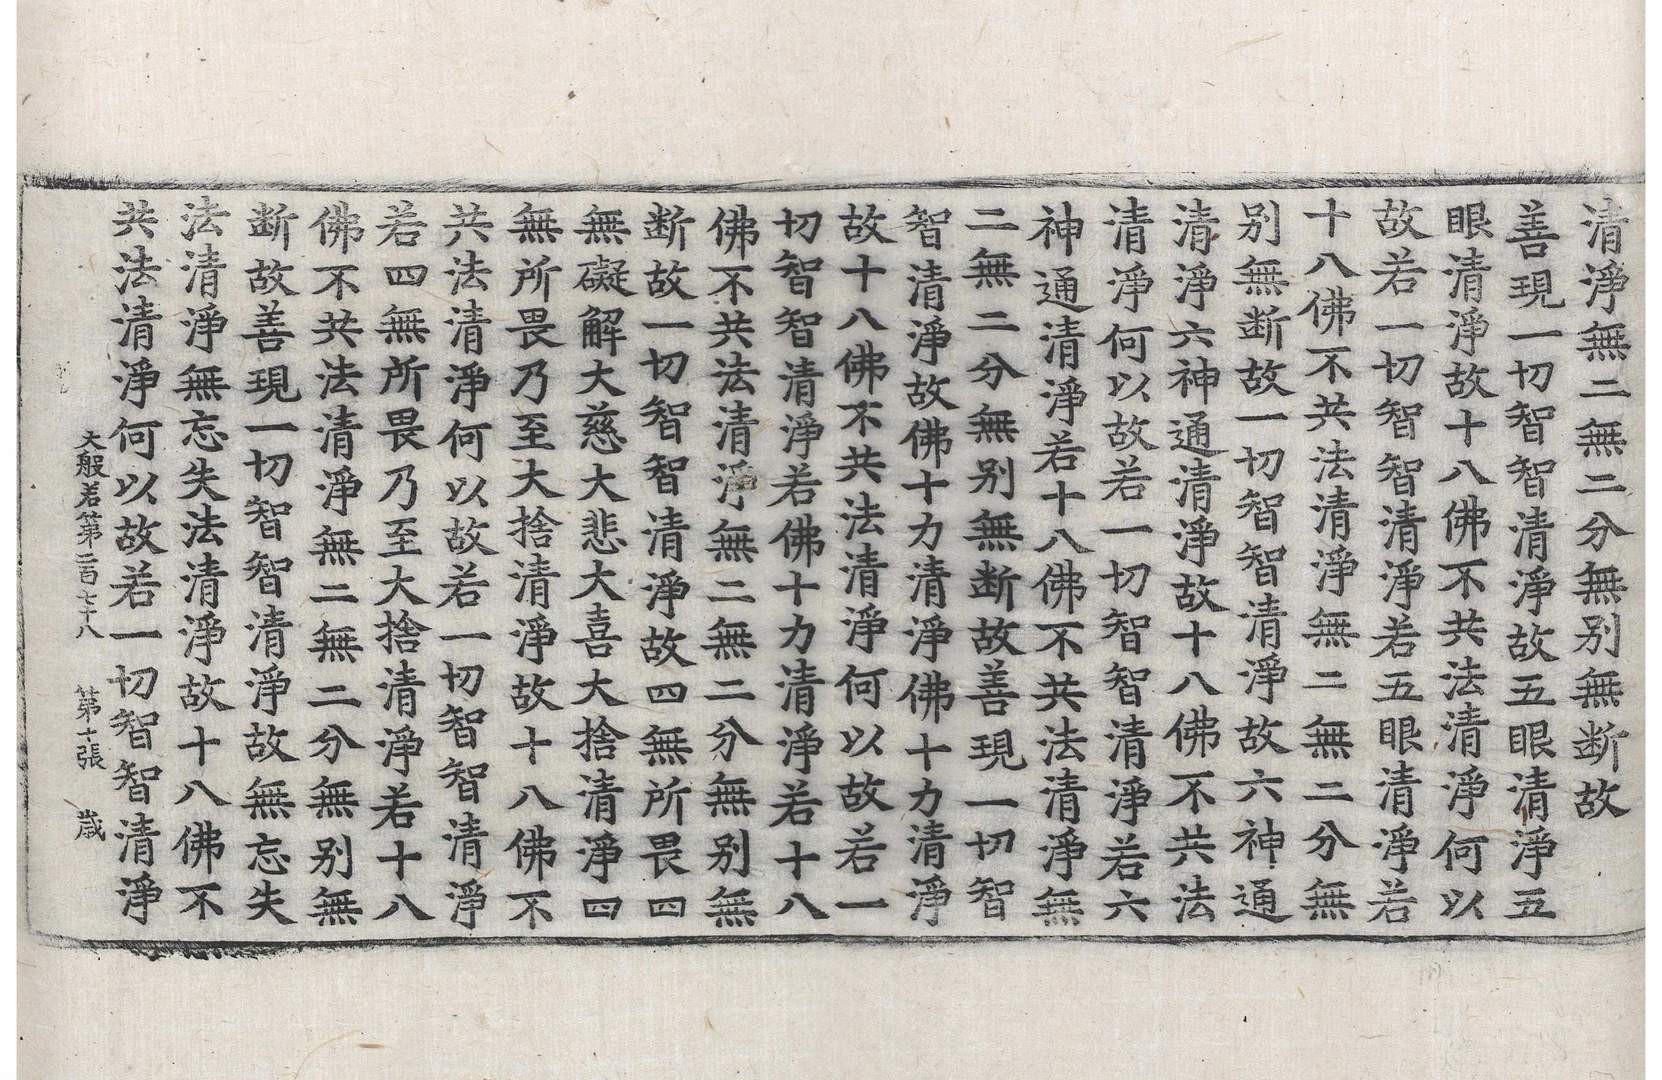 清淨無二無二分無别無断故
善現一切智智清淨故五眼清淨五
眼清淨故十八佛不共法清淨何以
故若一切智智清淨若五眼清淨若
十八佛不共法清淨無二無二分無
别無断故一切智智清淨故六神通
清淨六神通清淨故十八佛不共法
清淨何以故若一切智智清淨若六
神通清淨若十八佛不共法清淨無
二無二分無别無断故善現一切智
智清淨故佛十力清淨佛十力清淨
故十八佛不共法清淨何以故若一
切智智清淨若佛十力清淨若十八
佛不共法清淨無二無二分無别無
断故一切智智清淨故四無所畏四
無礙解大慈大悲大喜大捨清淨四
無所畏乃至大捨清淨故十八佛不
共法清淨何以故若一切智智清淨
若四無所畏乃至大捨清淨若十八
佛不共法清淨無二無二分無别無
断故善現一切智智清淨故無忘失
法清淨無忘失法清淨故十八佛不
共法清淨何以故若一切智智清淨
大般若第二百七十八 第十張 歳